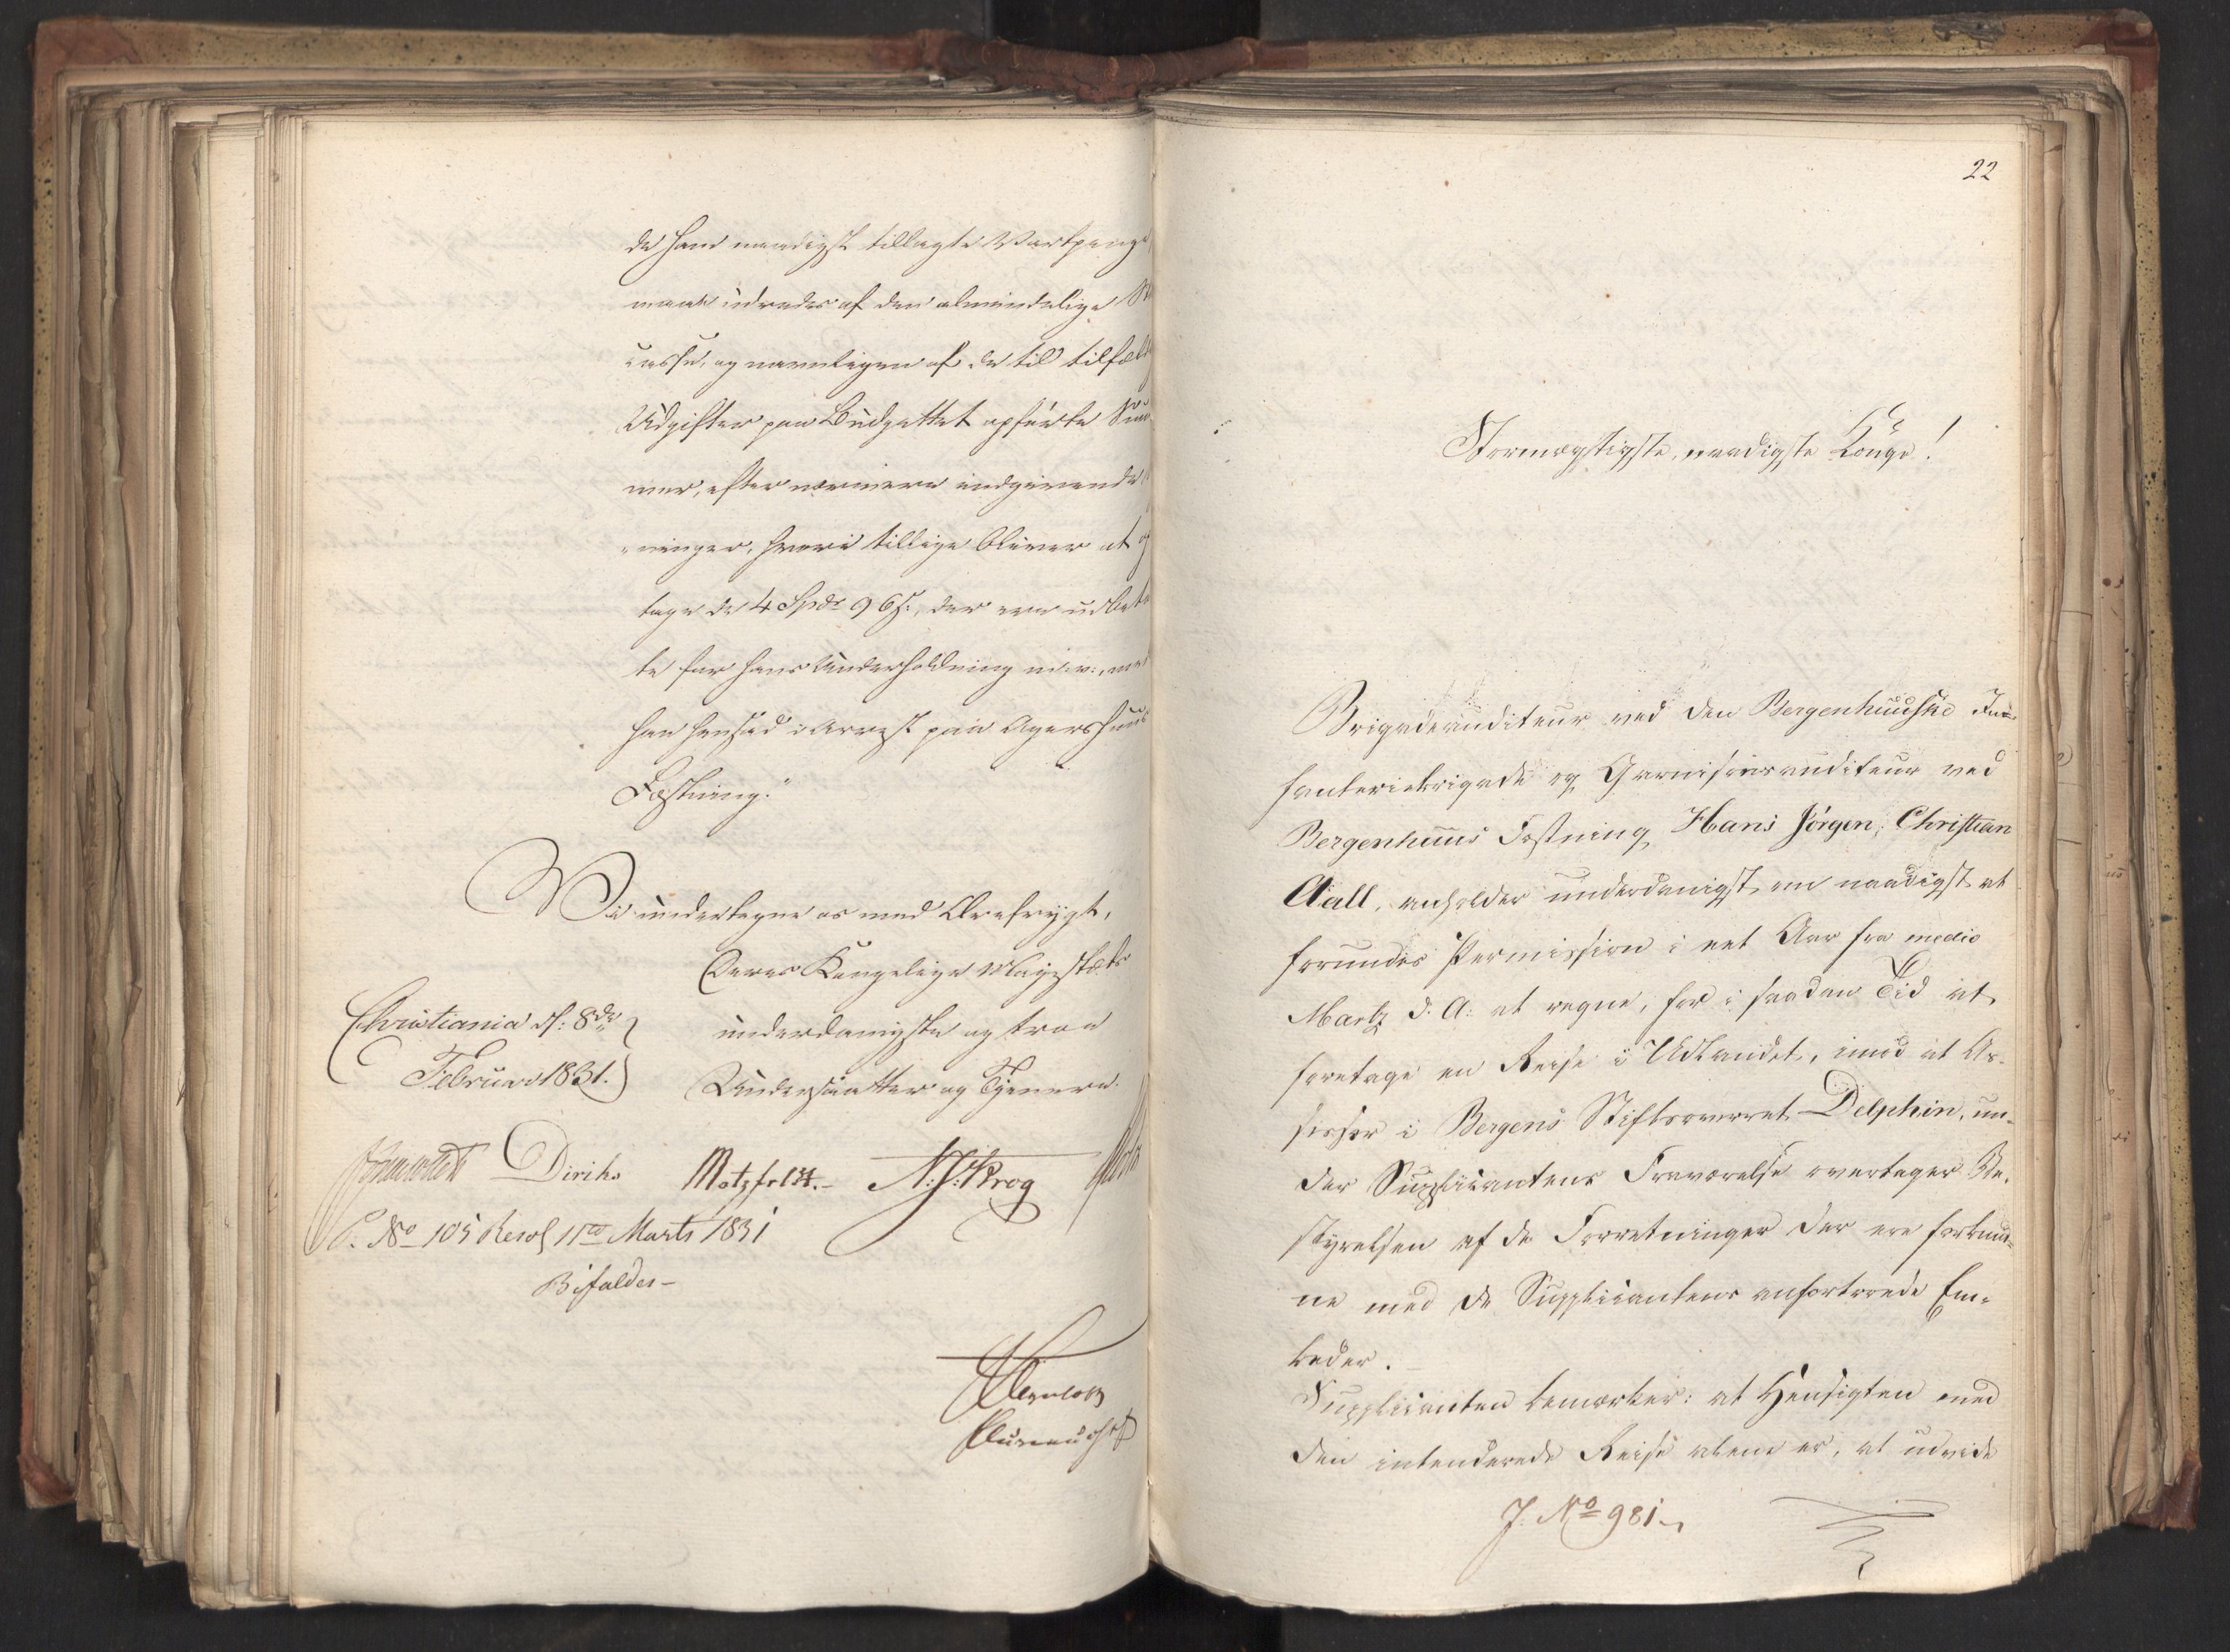 de ham naadigst tillagte Vartpenge
maae udredes af den almindelige
casse, og navnligen af de til tilfæld
Udgifter paa Budgettet opførte Sum
mer, efter nærmere indgivende
ninger, hvori tillige bliver at
tage de 4 Spdr 96 s., der ere udbetal
te for hans Underholdning m: v:, me
han hensad i Arrest paa Agershuus
Fæstning."
Vi undertegne os med Ærefrygt,
Deres Kongelige Majestæts
Christiania d: 8de
underdanigste og troe
Februar 1831.
Undersaatter og Tjenere.
Diriks Motzfeldt. N. J. Krog
P. No 105 Resol 11te Marts 1831
Bifaldes
22
Stormægtigste, naadigste Konge!
Brigadeauditeur ved den Bergenhuuske In-
fanteriebrigade og Garnisonsauditeur ved
Bergenhuus Fæstning Hans Jørgen Christian
Aall, anholder underdanigst om naadigst at
forundes Permission i eet Aar fra medio
Martz d. A. at regne, for i saadan Tid at
foretage en Reise i Udlandet, imod at As-
sessor i Bergens Stiftsoverret Delphin, un-
der Supplicantens Fraværelse overtager Be-
styrelsen af de Forretninger der ere forbund-
ne med de Supplicanten anfortroede Em-
beder.
Supplicanten bemærker: at Hensigten med
den intenderede Reise alene er, at udvide
J. No 981